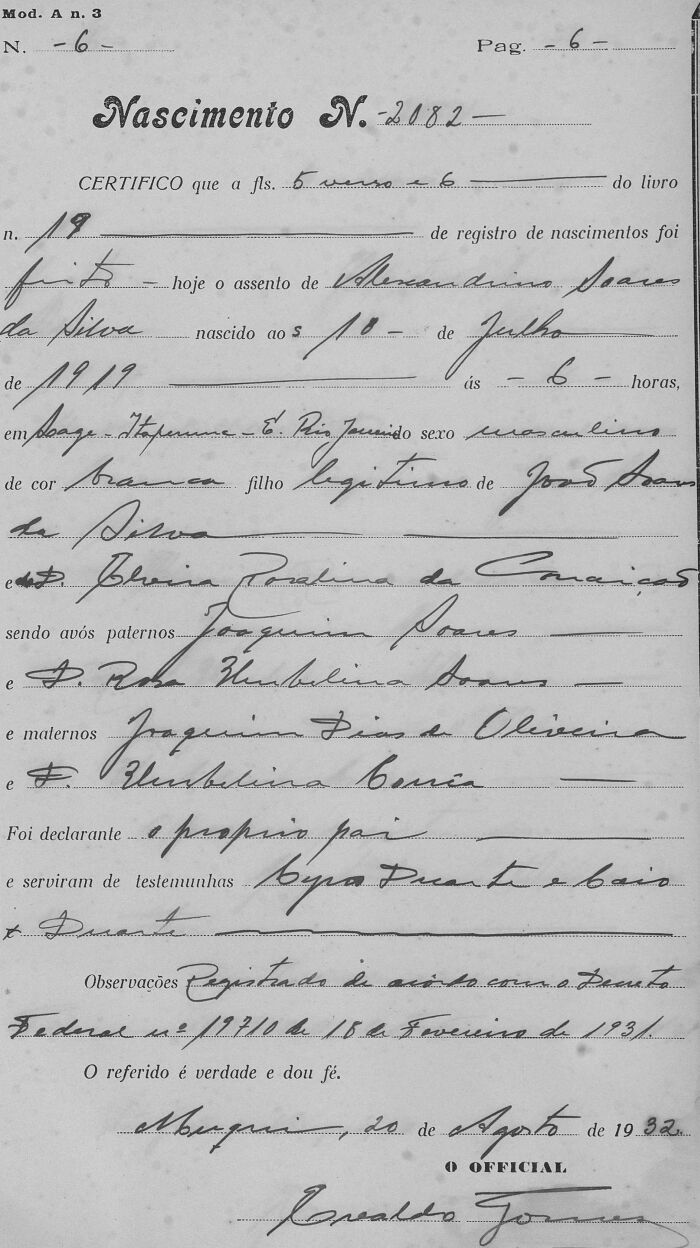 Mod. A n. 3
N. -6- Pag. -6-
Nascimento N. -2082-
CERTIFICO que a fls. 5 verso e 6 do livro
n. 19 de registro de nascimentos foi
feito - hoje o assento de Alexandrino Soares
da Silva nascido aos 10 - de Julho
de 1919 ás - 6 - horas,
em - Itaperuna - E. Rio Janeiro do sexo masculino
de cor branca filho legitimo de João Soares
da Silva
e de D. Elveira Rosalina da Conceição
sendo avós paternos Joaquim Soares
e D. Rosa Umbelina Soares
e maternos Joaquim Dias de Oliveira
e D. Umbelina Correia
Foi declarante o proprio pai
e serviram de testemunhas Cyro Duarte e Caio
Duarte
Observações Registrado de acôrdo com o Decreto
Federal nº 19710 de 18 de Fevereiro de 1931.
O referido é verdade e dou fé.
Muqui, 20 de Agosto de 1932.
O OFFICIAL
Eraldo Gomes